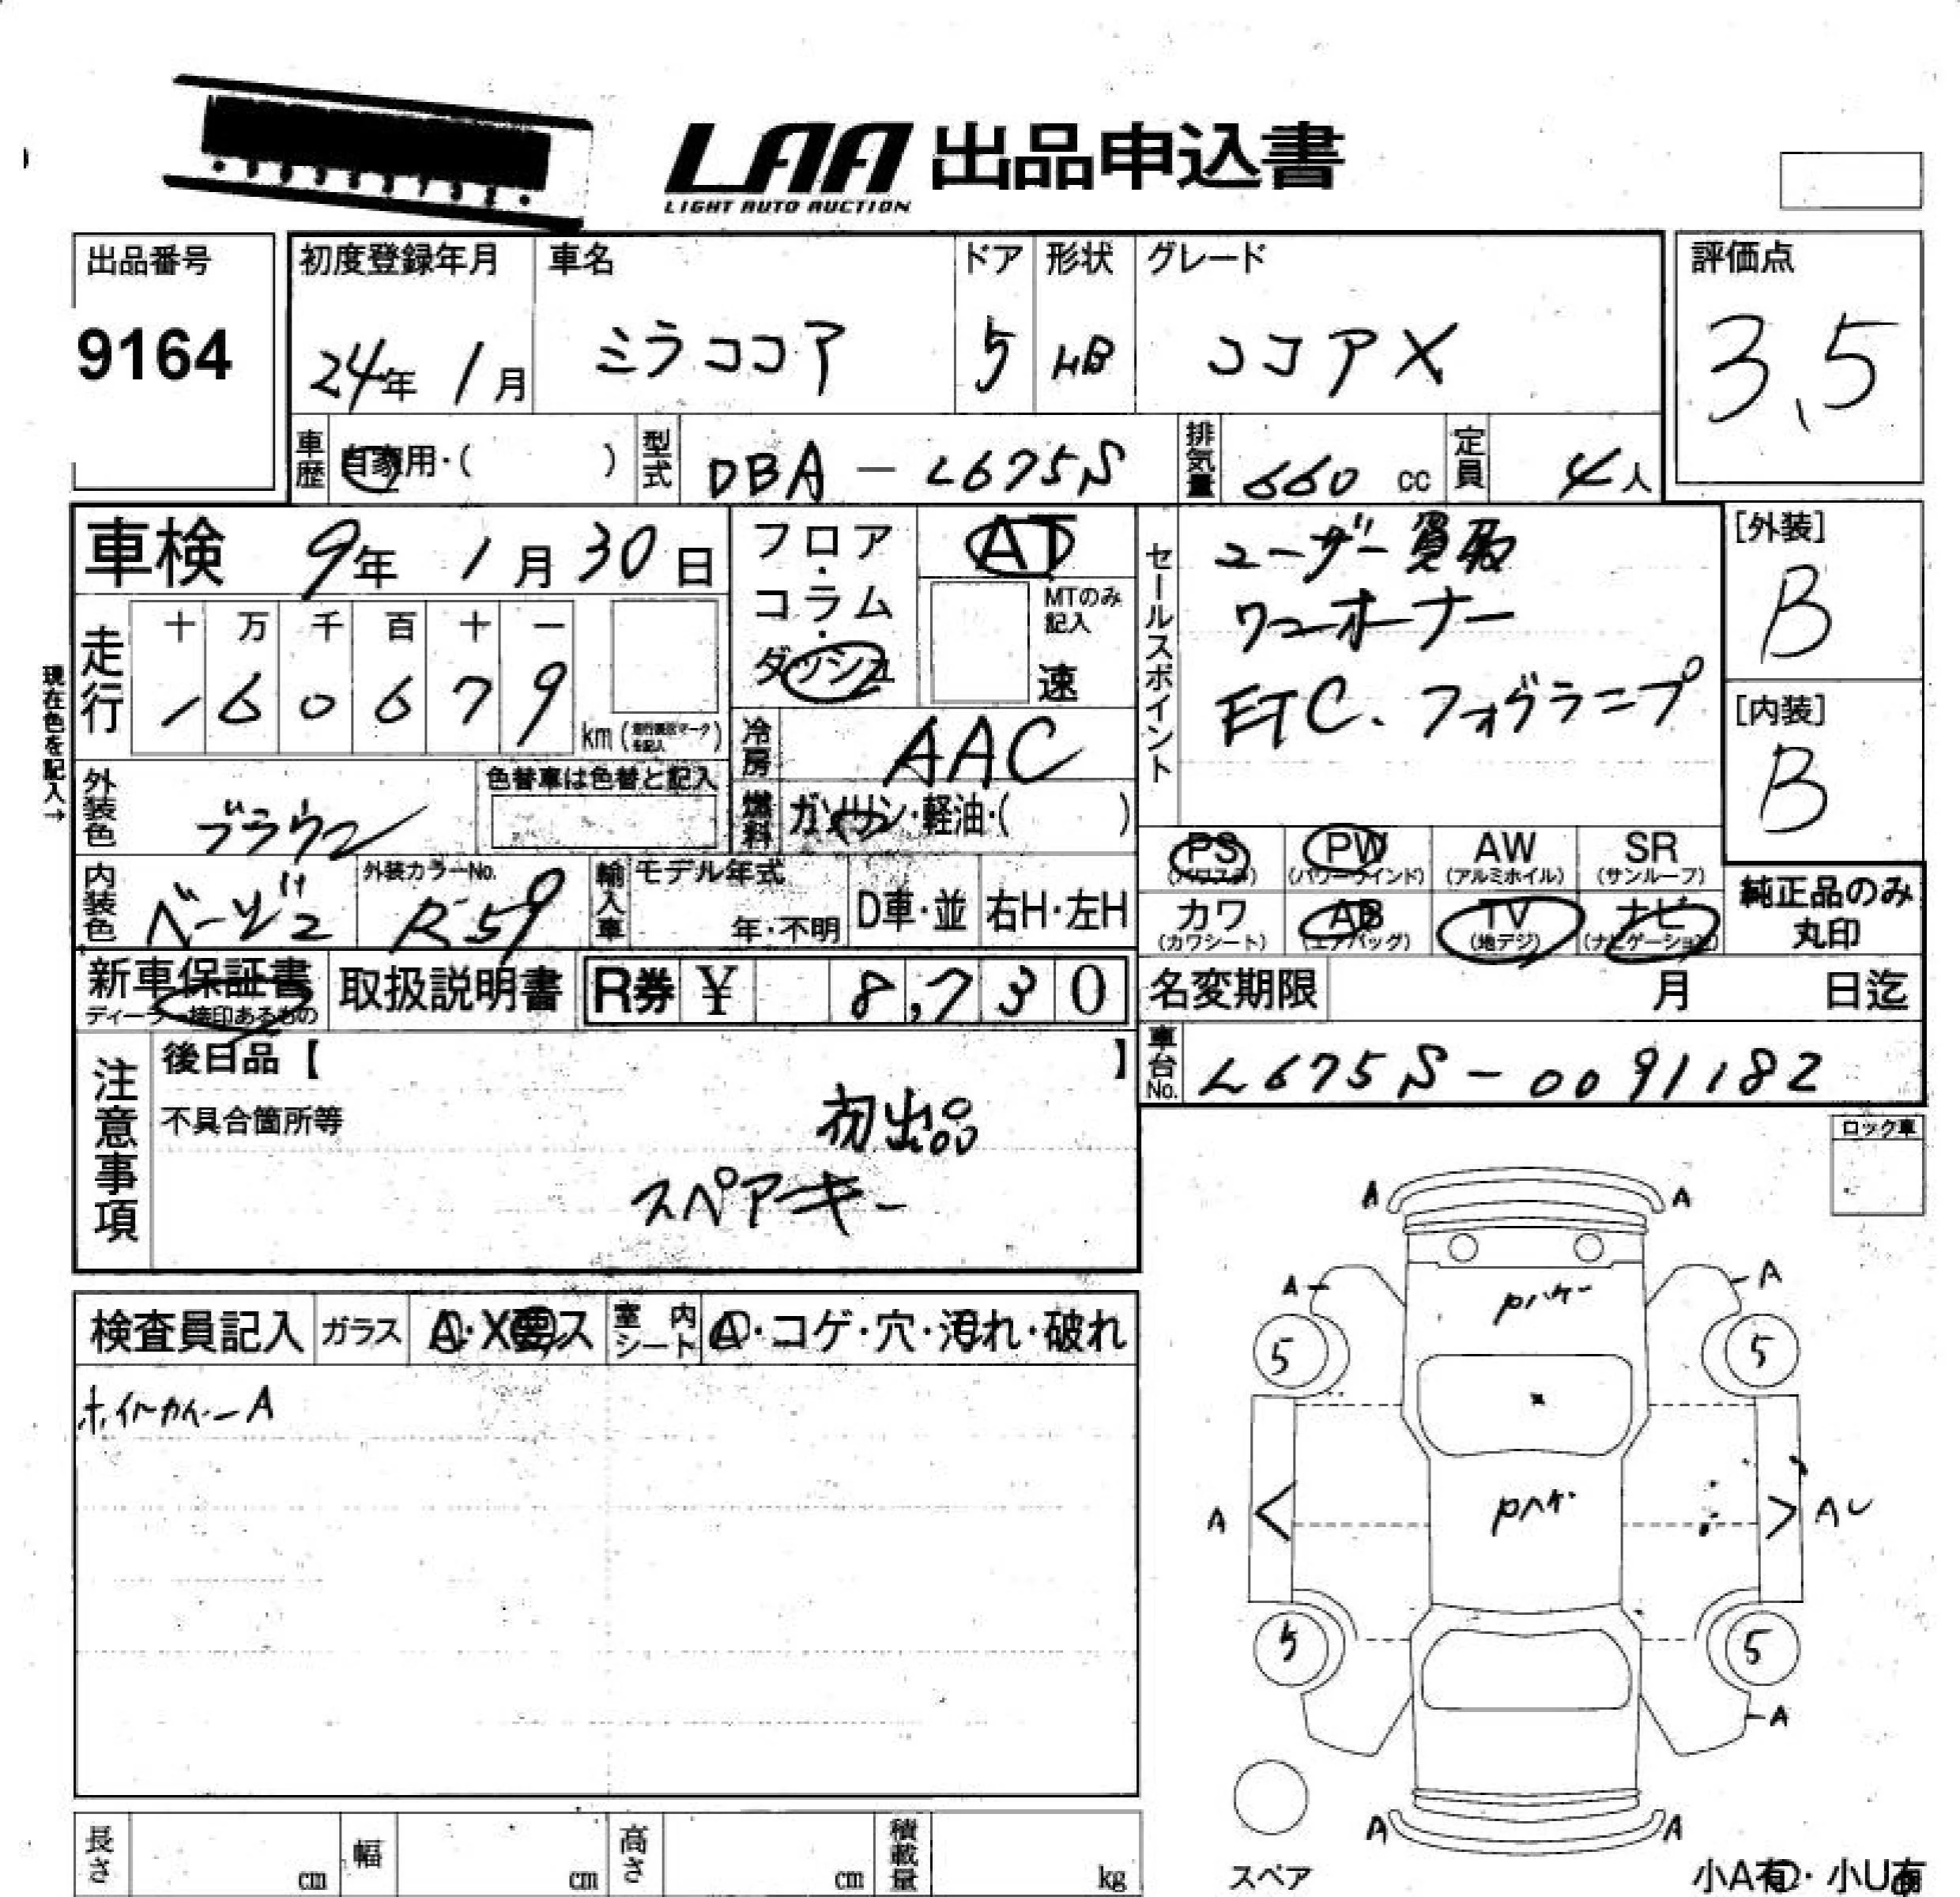 LAA 出品申込書
LIGHT AUTO AUCTION
出品番号
9164
初度登録年月
24年 1月
車名
ミラココア
ドア
5
形状
HB
グレード
ココアX
評価点
3.5
車歴 自家用・( )
型式 DBA - L675S
排気量 660 cc
定員 4人
車検 9年 1月 30日
フロア・コラム・ダッシュ
AT
MTのみ記入
速
セールスポイント
ユーザー買取
ワンオーナー
ETC. フォグランプ
[外装]
B
[内装]
B
現在色を記入→
走行
十 万 千 百 十 一
1 6 0 6 7 9
km
冷房 AAC
外装色 ブラウン
色替車は色替と記入
燃料 ガソリン・軽油・( )
PS
PW (パワーウインド)
AW (アルミホイル)
SR (サンルーフ)
カワ (カワシート)
AB (エアバッグ)
TV (地デジ)
ナビ (ナビゲーション)
純正品のみ
丸印
内装色 ベージュ
外装カラーNo.
R59
輸入車
モデル年式
年・不明
D車・並
右H・左H
新車保証書
ディーラー捺印あるもの
取扱説明書
R券 ¥ 8,730
名変期限 月 日迄
車台No. L675S - 0091182
注意事項
後日品【 】
不具合箇所等
初出品
スペアーキー
ロック車
検査員記入
ガラス A・X要ス
室内シート A・コゲ・穴・汚れ・破れ
ホイルカバーA
A A
A A
Pハゲ
5 5
A
Pハゲ
A U
5 5
A
A A
スペア
長さ cm
幅 cm
高さ cm
積載量 kg
小A有・小U有